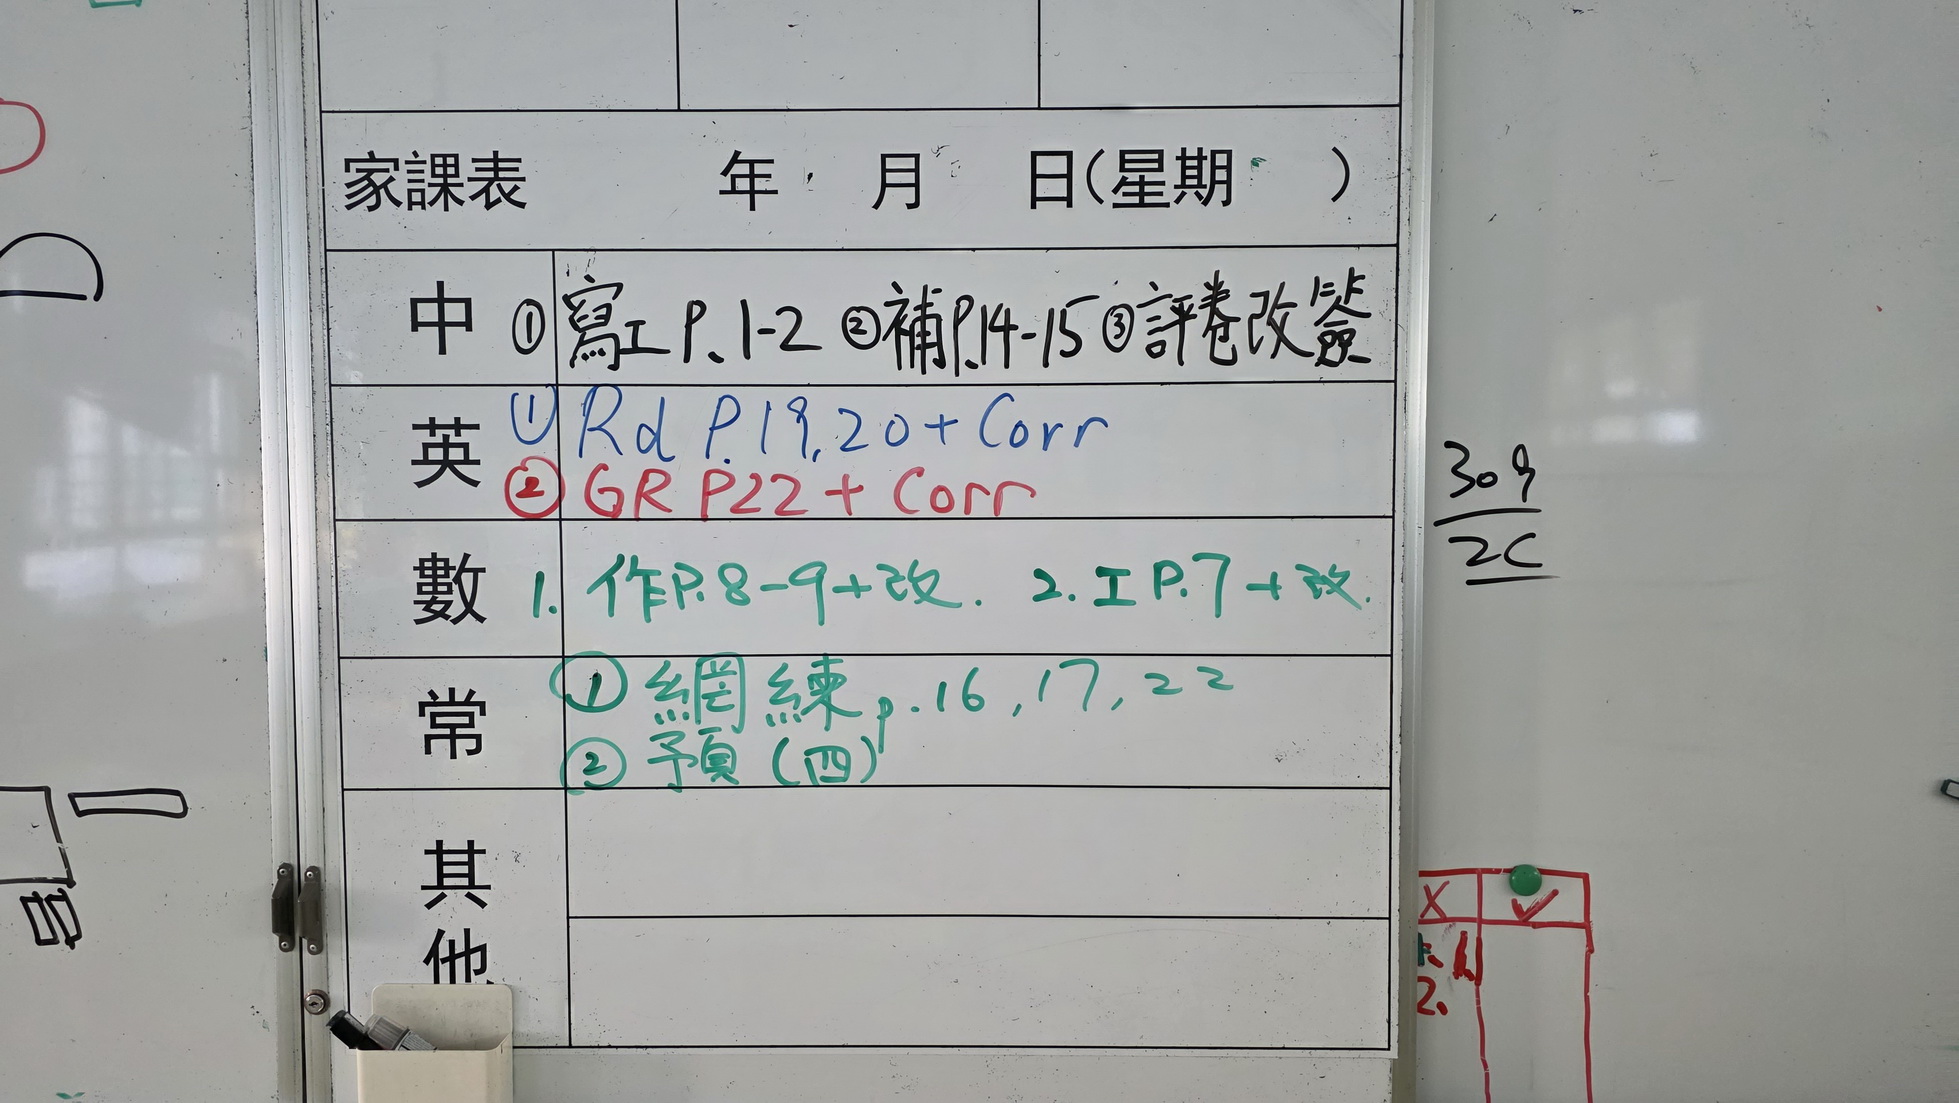 家課表 年 月 日(星期 )
中 ①寫工P.1-2 ②補P.14-15 ③評卷改簽
英 ① Rd P.19,20+Corr
② GR P22+Corr
數 1. 作P.8-9+改. 2. 工P.7+改.
常 ① 網練p.16,17,22
② 預(四)
其他
309
2C
X ✓
1.
2.